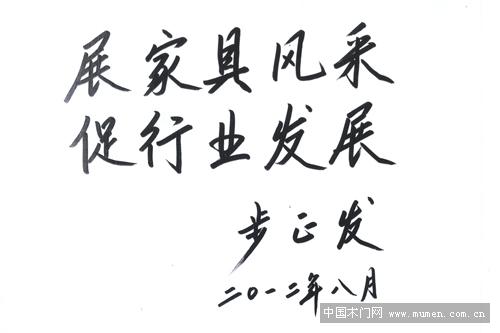 展家具风采
促行业发展
步正发
二〇一二年八月
中国木门网
www.mumen.com.cn